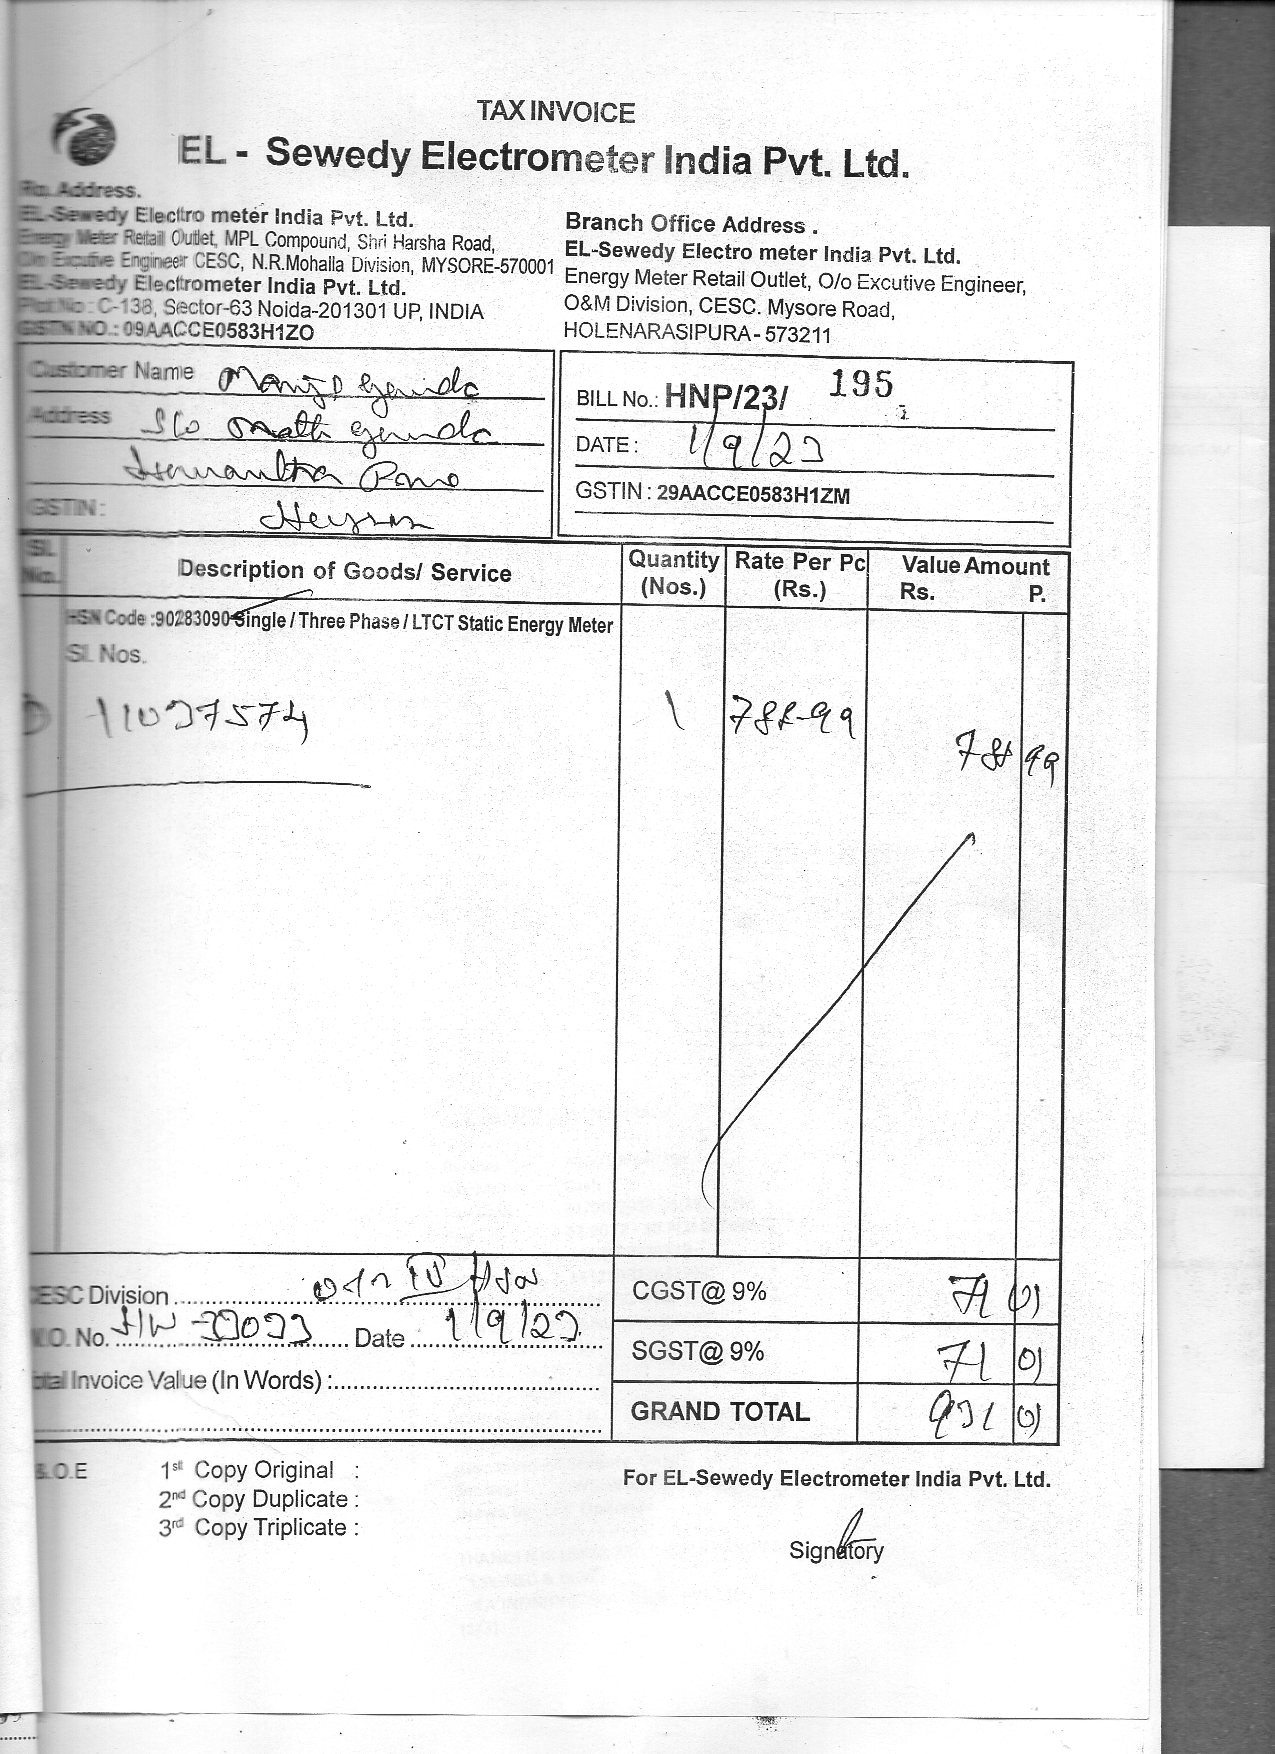 TAX INVOICE
EL - Sewedy Electrometer India Pvt. Ltd.
Rg. Address.
EL-Sewedy Electro meter India Pvt. Ltd.
Energy Meter Retail Outlet, MPL Compound, Shri Harsha Road,
O/o Excutive Engineer CESC, N.R.Mohalla Division, MYSORE-570001
EL-Sewedy Electrometer India Pvt. Ltd.
Plot No : C-138, Sector-63 Noida-201301 UP, INDIA
GSTN NO.: 09AACCE0583H1ZO
Branch Office Address .
EL-Sewedy Electro meter India Pvt. Ltd.
Energy Meter Retail Outlet, O/o Excutive Engineer,
O&M Division, CESC. Mysore Road,
HOLENARASIPURA - 573211
Customer Name
Address S/o
GSTIN :
BILL No.: HNP/23/ 195
DATE : 1/9/23
GSTIN : 29AACCE0583H1ZM
SL No. Description of Goods/ Service Quantity (Nos.) Rate Per Pc (Rs.) Value Amount Rs. P.
HSN Code :90283090-Single / Three Phase / LTCT Static Energy Meter
SI. Nos.
11027574 1 788-99
788 99
CESC Division
W.O. No. Date 1/9/23
Total Invoice Value (In Words) :
CGST@ 9% 71 01
SGST@ 9% 71 01
GRAND TOTAL 931 01
E.O.E
1st Copy Original :
2nd Copy Duplicate :
3rd Copy Triplicate :
For EL-Sewedy Electrometer India Pvt. Ltd.
Signatory